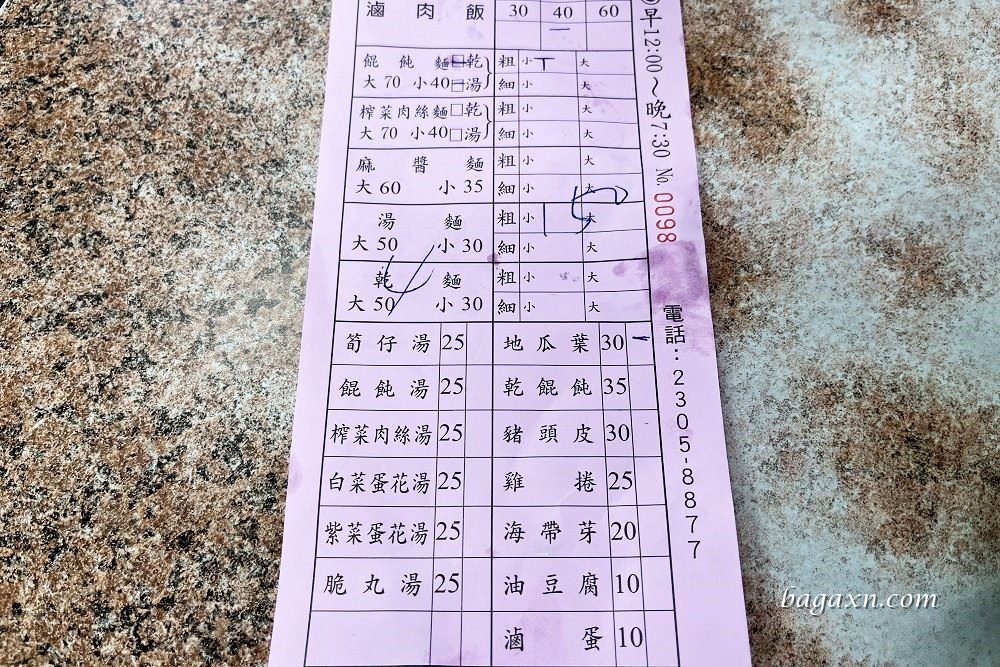 滷肉飯 30 40 60
一
餛飩麵□乾 粗 小 T 大
大70 小40□湯 細 小 大
榨菜肉絲麵□乾 粗 小 大
大70 小40□湯 細 小 大
麻醬麵 粗 小 大
大60 小35 細 小 大
湯麵 粗 小 大
150
大50 小30 細 小 大
乾麵 粗 小 大
大50 小30 細 小 大
筍仔湯 25 地瓜葉 30 一
餛飩湯 25 乾餛飩 35
榨菜肉絲湯 25 豬頭皮 30
白菜蛋花湯 25 雞捲 25
紫菜蛋花湯 25 海帶芽 20
脆丸湯 25 油豆腐 10
滷蛋 10
早12:00～晚7:30 No. 0098
電話:2305-8877
bagaxn.com